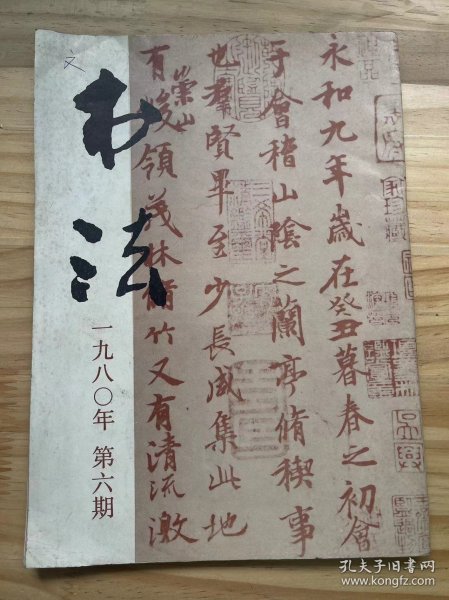 文
书法
一九八〇年 第六期
永和九年歲在癸丑暮春之初會
于會稽山陰之蘭亭脩稧事
也羣賢畢至少長咸集此地
有崇山峻領茂林脩竹又有清流激
孔夫子旧书网
www.kongfz.com